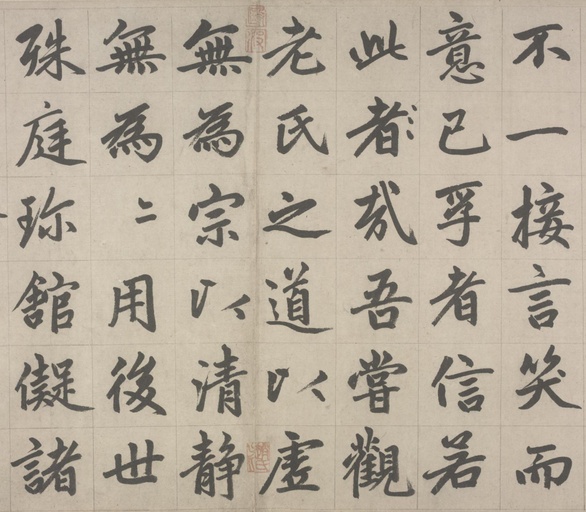 不一接言笑而
意已孚者信若
此者𢦏吾嘗觀
老氏之道以虛
無為宗以清静
無為〻用後世
殊庭珎舘儗諸